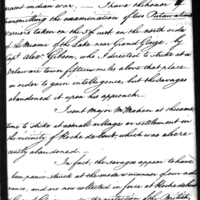 present indian war. — I have the honor of
transmitting the examination of two Putawatime
Warriors taken on the 5th inst. on the north side
of the Miami of the Lake near Grand Glaize. By
Capt. Alexr. Gibson, who I directed to strike at a
Delaware town fifteen mile above that place
in order to gain intelligence, but the savages
abandoned it upon his approach. —
I sent Major McMahan at the same
time to strike at a small village or settlement in
the vicinity of Roche de bout, which was also re-
cently abandoned. —
In fact, the savages appear to have
been panic struck at the manoeuvre of our adv-
ance, and are now collected in force at Roche de bout
under the protection of the British